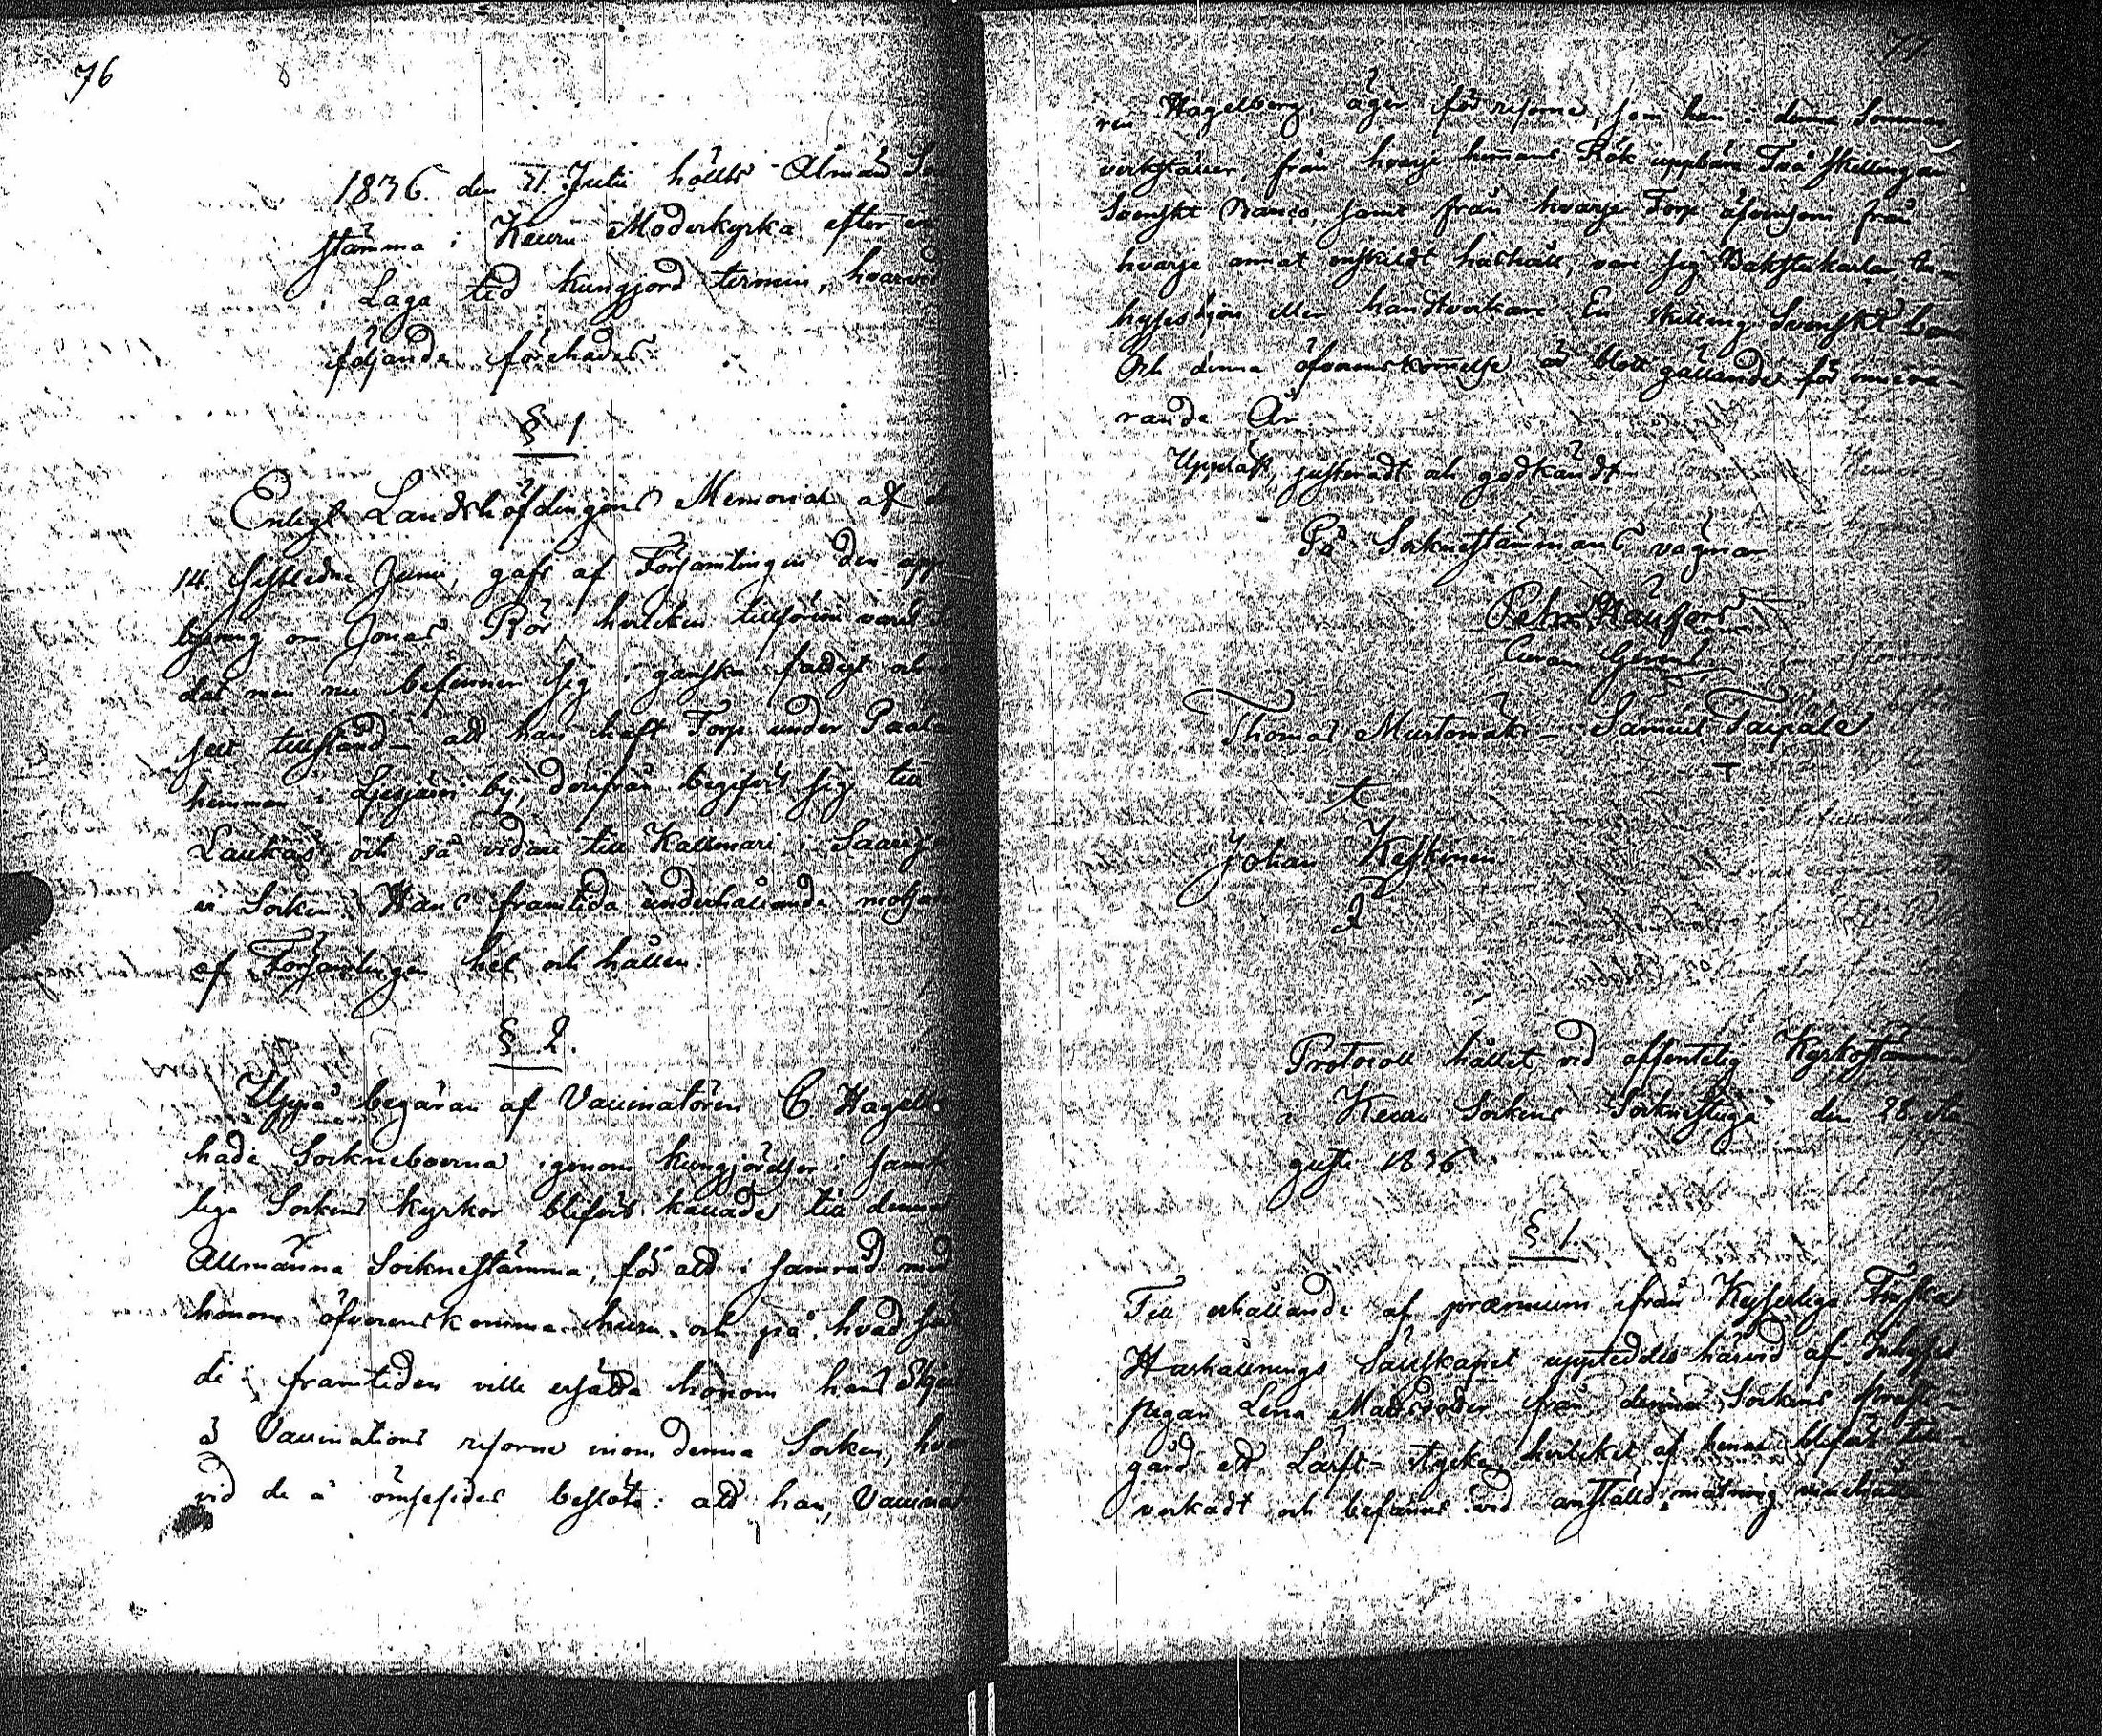 76
1836 den 31 Julii hölts Almän So
stämma i Keuru Moderkyrka efter en
i Laga tid kungjord termin, hvarvid
följande förehades:
§ 1
Enligt Landshöfdingens Memorial af d
14 sistledne Junii, gafs af Församlingen den upp
lysning om Jonas Rör, hvilken tillförene varit
dat men nu befinner sig i ganska fattigt och
selt tillstånd – att han haft Torp under Paala
hemman i Liesjärvi by, derifrån begifvit sig till
Laukas och så vidare till Kallmari i Saarijä
vi Socken. Hans framtida underhållande
af Församlingen helt och hållen.
§ 2.
Uppå begäran af Vaccinatören C. Hagelbe
hade Sockneboerna igenom kungjörelser i samt
lige Sockens kyrkor blifvit kallade till denna
Allmänna Socknestämma, för att i samråd med
honom öfverenskomma huru och på hvad sät
de i framtiden ville ersätta honom hans Skju
å Vaccinations resorne inom denna Socken, hvar
vid de å ömsesidor beslöto: att han, Vaccinat
77
ren Hagelberg, äger för resorne, som han i denna Sommar
verkställer, från hvarje hemmans Rök uppbära Två skillingar
Svenskt Banco, samt från hvarje Torp äfvensom från
hvarje annat enskildt hushåll, vare sig Backstukarlar, In-
hyses hjon eller handtverkare En skilling Svenskt Banco
Och denna öfverenskommelse är blott gällande för inneva-
rande År.
Uppläst, justeradt och godkändt
På Socknestämmans vägnar
Thomas Murtomäki – Samuel Taipale
Johan Keskinen
Protocoll hållet vid offentelig Kyrkostämma
i Keuru Sockens Sockenstuga den 28 Au
gusti 1836
§ 1.
Till erhållande af præmium ifrån Kejserliga Finska
Hushållnings Sällskapet uppteddes härvid af Inhyses
pigan Lena Mattsdoter från denna Sockens prest-
gård ett Lärft-stycke, hvilket af henne blifvit till-
verkadt och befanns vid anställd mätning innehålla